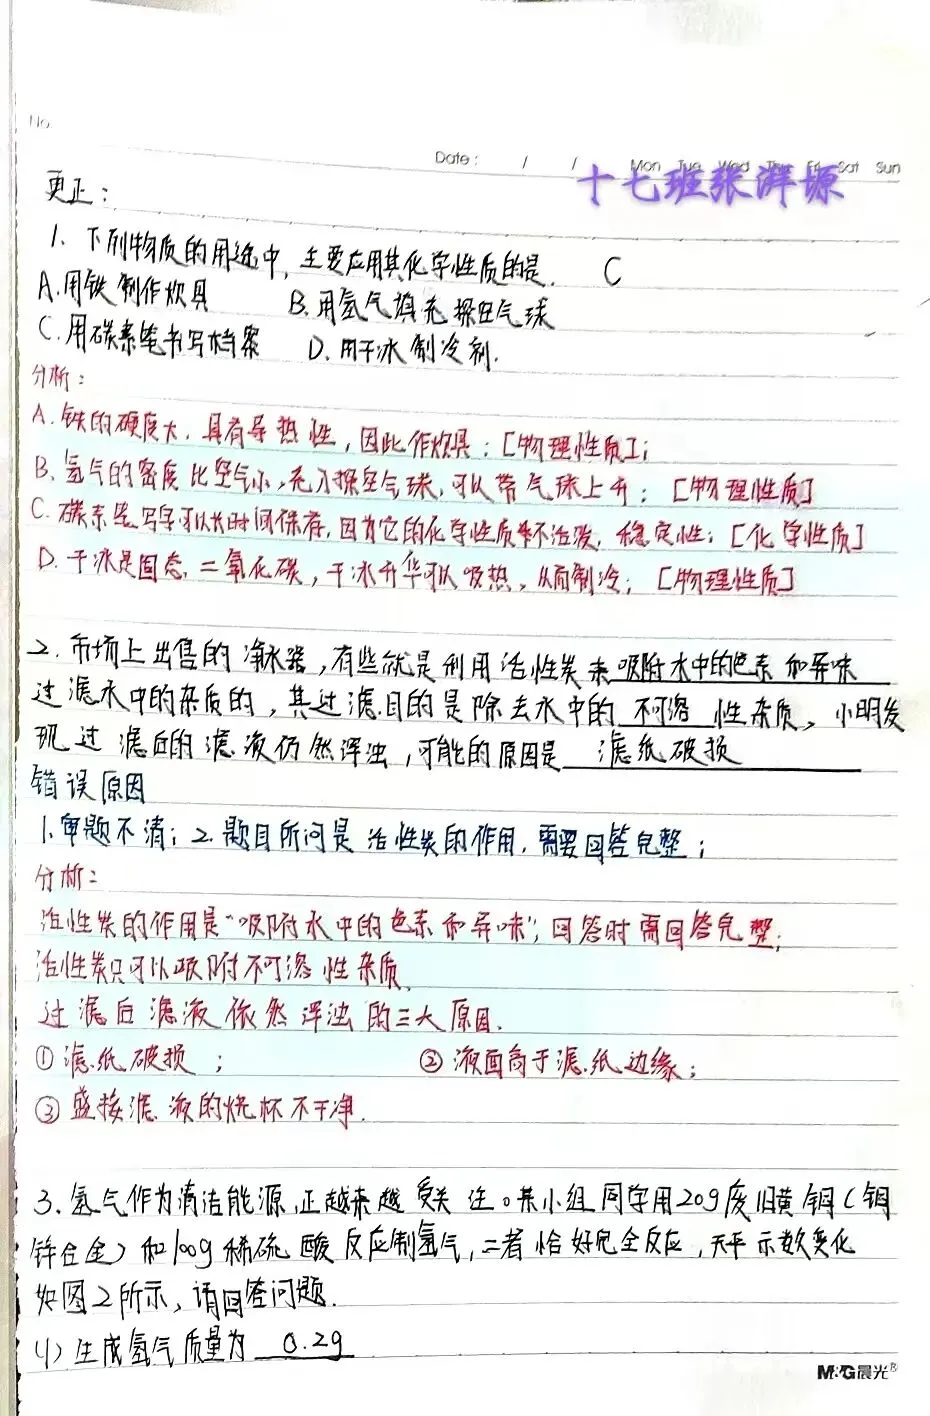 No.
Date: / / Mon Tue Wed Thu Fri Sat Sun
十七班张湃塬
更正：
1、下列物质的用途中，主要应用其化学性质的是. C
A.用铁制作炊具 B.用氢气填充探空气球
C.用碳素笔书写档案 D.用干冰制冷剂.
分析：
A.铁的硬度大，具有导热性，因此作炊具：[物理性质]；
B.氢气的密度比空气小，充入探空气球，可以带气球上升；[物理性质]
C.碳素笔写字可以长时间保存，因为它的化学性质不活泼，稳定性；[化学性质]
D.干冰是固态，二氧化碳，干冰升华可以吸热，从而制冷；[物理性质]
2.市场上出售的净水器，有些就是利用活性炭来吸附水中的色素和异味
过滤水中的杂质的，其过滤目的是除去水中的不可溶性杂质，小明发
现过滤后的滤液仍然浑浊，可能的原因是 滤纸破损
错误原因
1.审题不清；2.题目所问是活性炭的作用，需要回答完整；
分析：
活性炭的作用是“吸附水中的色素和异味”，回答时需回答完整；
活性炭只可以吸附不可溶性杂质.
过滤后滤液依然浑浊的三大原因.
①滤纸破损； ②液面高于滤纸边缘；
③盛接滤液的烧杯不干净.
3.氢气作为清洁能源，正越来越受关注。某小组同学用20g废旧黄铜(铜
锌合金)和100g稀硫酸反应制氢气，二者恰好完全反应，天平示数变化
如图2所示，请回答问题.
(1)生成氢气质量为 0.2g
M&G晨光®